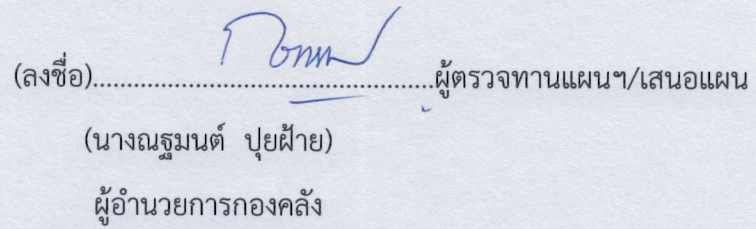 (ลงชื่อ)..............................................ผู้ตรวจทานแผนฯ/เสนอแผน
(นางณฐมนต์ ปุยฝ้าย)
ผู้อำนวยการกองคลัง